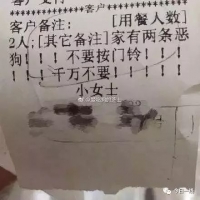 客户
客户备注： [用餐人数]
2人;[其它备注]家有两条恶
狗！！！不要按门铃！！！！
！！！千万不要！！！！！
小女士